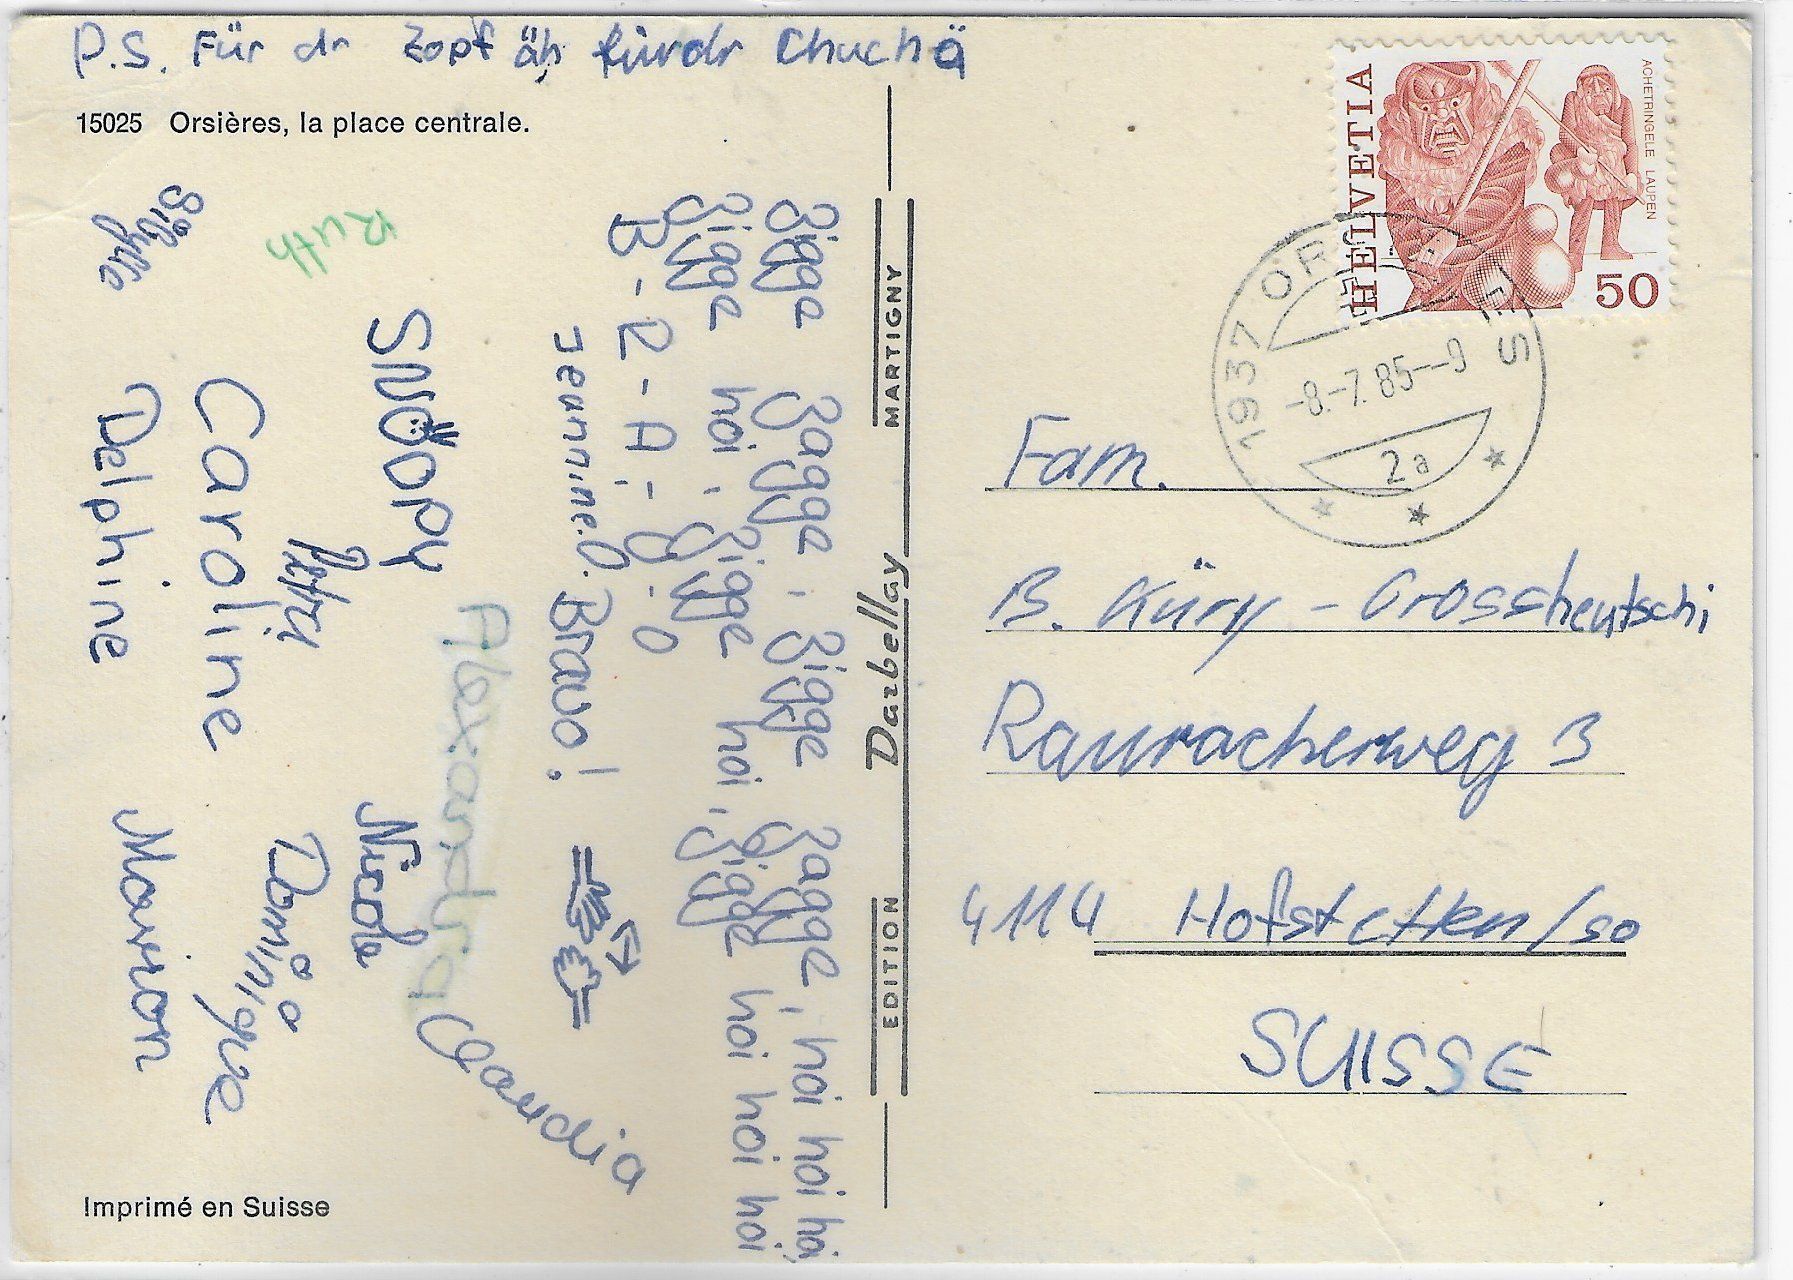 P.S. Für dr Zopf äh fürdr Chuchä
15025 Orsières, la place centrale.
Zigge Zagge, Zigge Zagge, hoi hoi hoi,
Zigge hoi, Zigge hoi, Zigge hoi hoi hoi
B-R-A-V-O
Jeannine.O. Bravo!
Alexandra
Claudia
SNOOPY
Nicole
Ruth
Petry
Dominique
Caroline
Sibylle
Delphine
Marion
Imprimé en Suisse
EDITION Darbellay MARTIGNY
HELVETIA
ACHETRINGELE LAUPEN
50
1937 ORSIÈRES
-8.-7.85--9
2a
Fam.
B. Küry - Grossheutschi
Rauracherweg 3
4114 Hofstetten/so
SUISSE